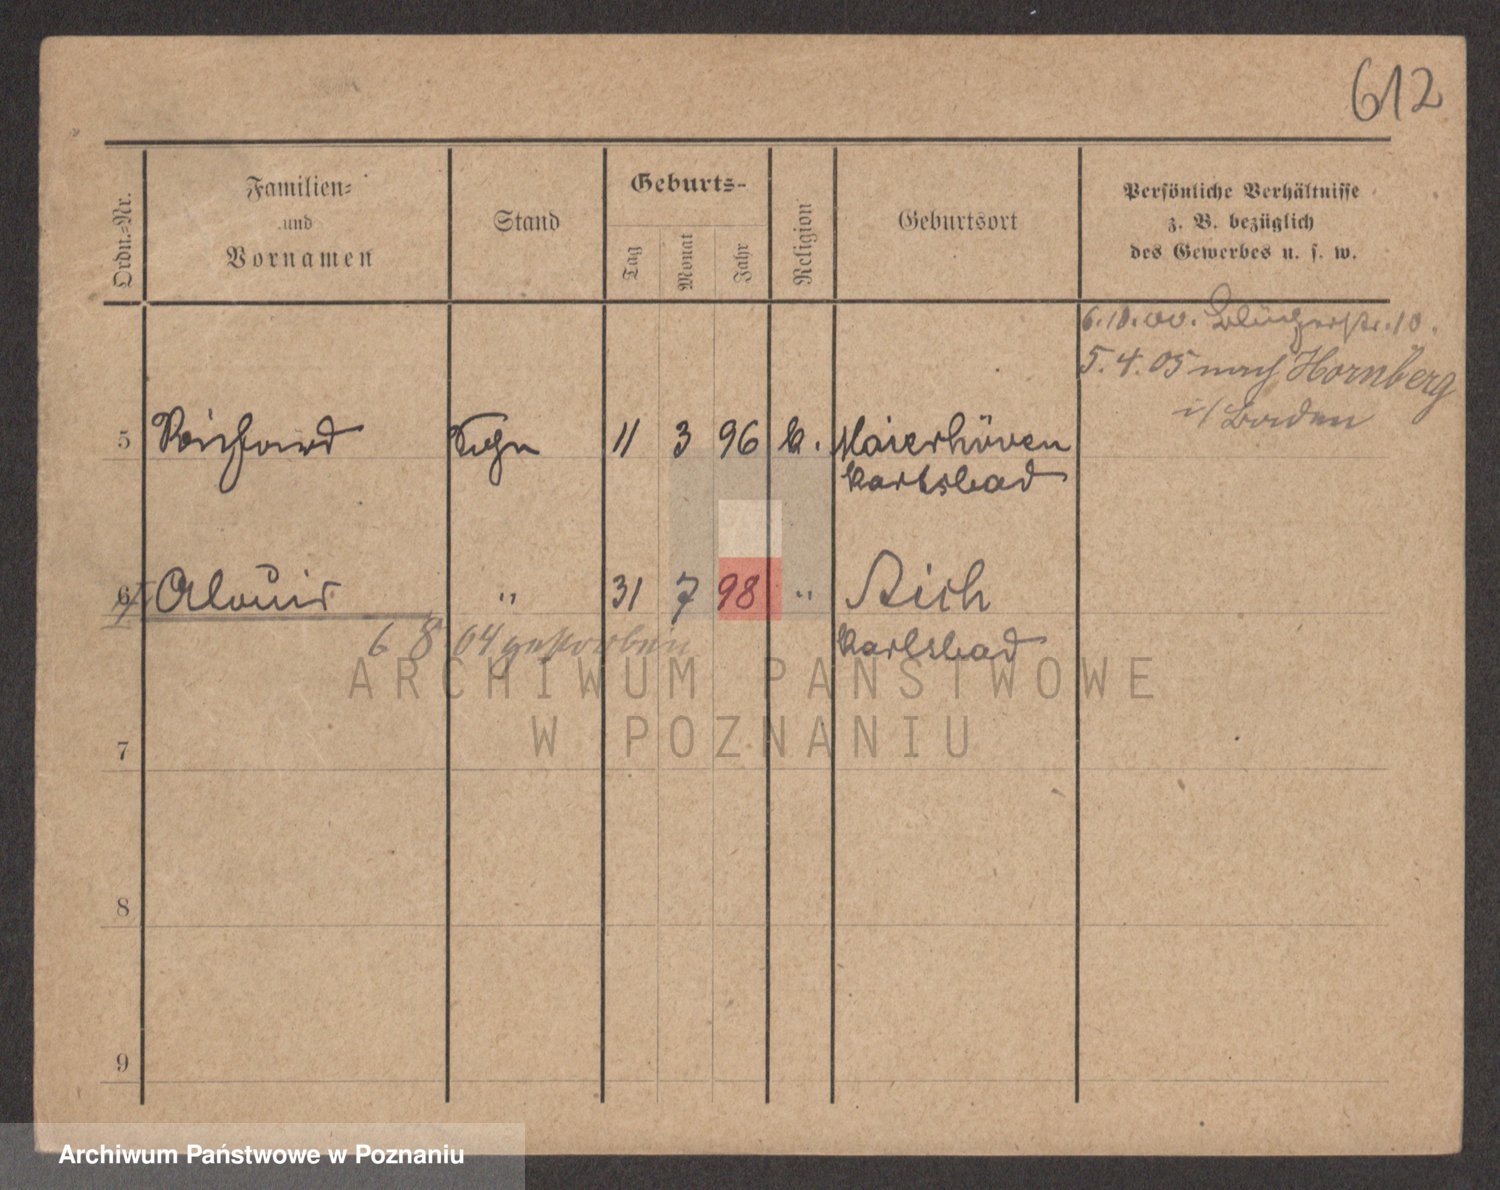 612
Ordn.-Nr.
Familien-
und
Vornamen
Stand
Geburts-
Tag
Monat
Jahr
Religion
Geburtsort
Persönliche Verhältnisse
z. B. bezüglich
des Gewerbes u. s. w.
6.10.00. 10.
5.4.05 nach Hornberg
i/ Baden
5 Richard Sohn 11 3 96 k. Maierhöven
Karlsbad
6 Alouis " 31 7 98 " Aich
6 8 04 gestorben Karlsbad
ARCHIWUM PAŃSTWOWE
W POZNANIU
7
8
9
Archiwum Państwowe w Poznaniu